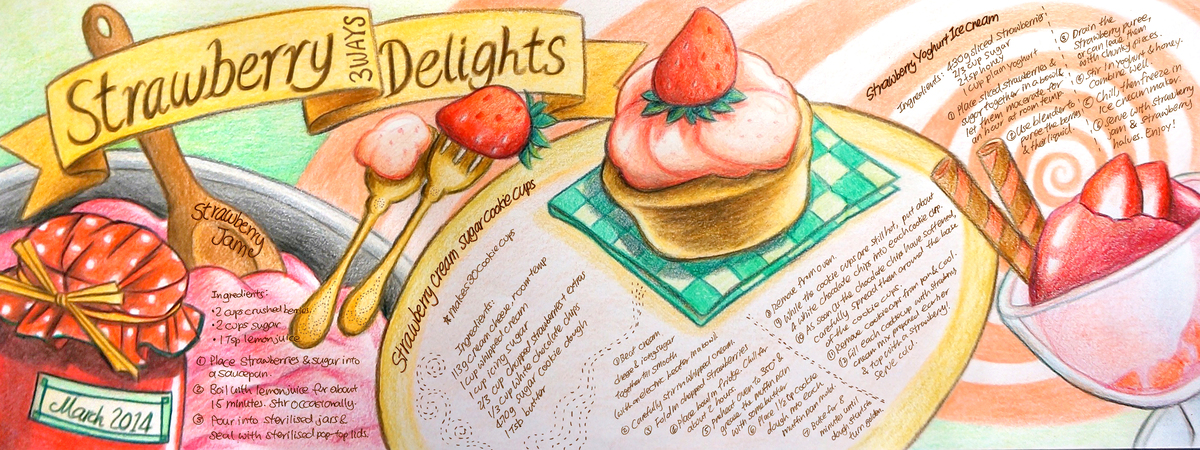 Strawberry
3 WAYS
Delights
Strawberry
Jam
Ingredients:
• 2 cups crushed berries
• 2 cups sugar
• 1 Tsp lemon juice
① Place strawberries & sugar into
a saucepan.
② Boil with lemon juice for about
15 minutes. Stir occasionally.
③ Pour into sterilised jars &
seal with sterilised pop-top lids.
March 2014
Strawberry Cream Sugar Cookie Cups
* makes 30 cookie cups
Ingredients:
113g cream cheese, room temp
1 cup whipped cream
1 cup icing sugar
2/3 cup chopped strawberries + extras
1/3 cup white chocolate chips
490g sugar cookie dough
1 tsp butter
① Beat cream
cheese & icing sugar
together till smooth
(with electric beater) in a bowl
② Carefully stir in whipped cream.
③ Fold in chopped strawberries
④ Place bowl in fridge. Chill for
about 2 hours.
⑤ Preheat oven to 350 &
grease the muffin pan
with some butter.
⑥ Place 1 1/2 tbsp cookie
dough into each
muffin pan hole
⑦ Bake for 8
minutes until
dough starts to
turn golden.
⑧ Remove from oven.
⑨ While the cookie cups are still hot, put about
4 white chocolate chips into each cookie cup.
⑩ As soon as the chocolate chips have softened,
carefully spread them around the base
of the cookie cups.
⑪ Remove cookies from pan & cool.
⑫ Fill each cookie cup with strawberry
cream mix prepared earlier
& top with a strawberry.
Serve cold.
Strawberry Yoghurt Ice Cream
Ingredients: 490g sliced strawberries
2/3 cup sugar
2 Tsp honey
1 cup plain yoghurt
① Place sliced strawberries &
sugar together in a bowl &
let them macerate for
an hour at room temp
② Use blender to
puree the berries
& their liquid.
③ Drain the
strawberry puree,
or can leave them
with chunky pieces.
④ Stir in yoghurt & honey.
Combine well.
⑤ Chill, then freeze in
Ice Cream maker.
⑥ Serve with strawberry
jam & strawberry
halves. Enjoy!